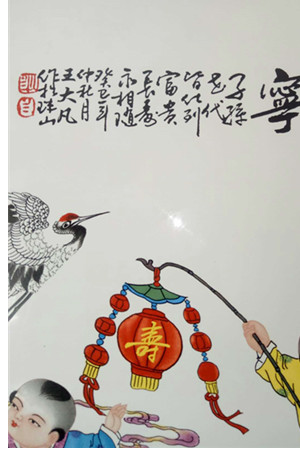 寧
子孫
代
皆
富貴
長壽
亦相隨
癸巳年
仲秋月
王大凡
作於珠山
寿